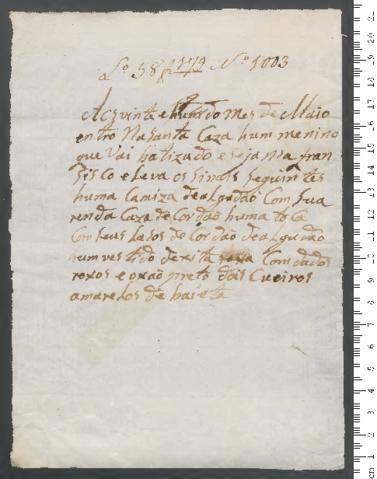 Lº 58 f 179 Nº 1003
Aos vinte e hum do mes de Maio
entro Na Santa Caza hum menino
que Vai batizado e seja ma fran
sisco e leva os sinais seguintes
huma Camiza de algodão Com sua
renda Caza de Cordão huma toca
Com seus lasos de Cordão de algudão
hum vestido de xita Com dados
roxos e oxão preto dois Cueiros
amarelos de baieta